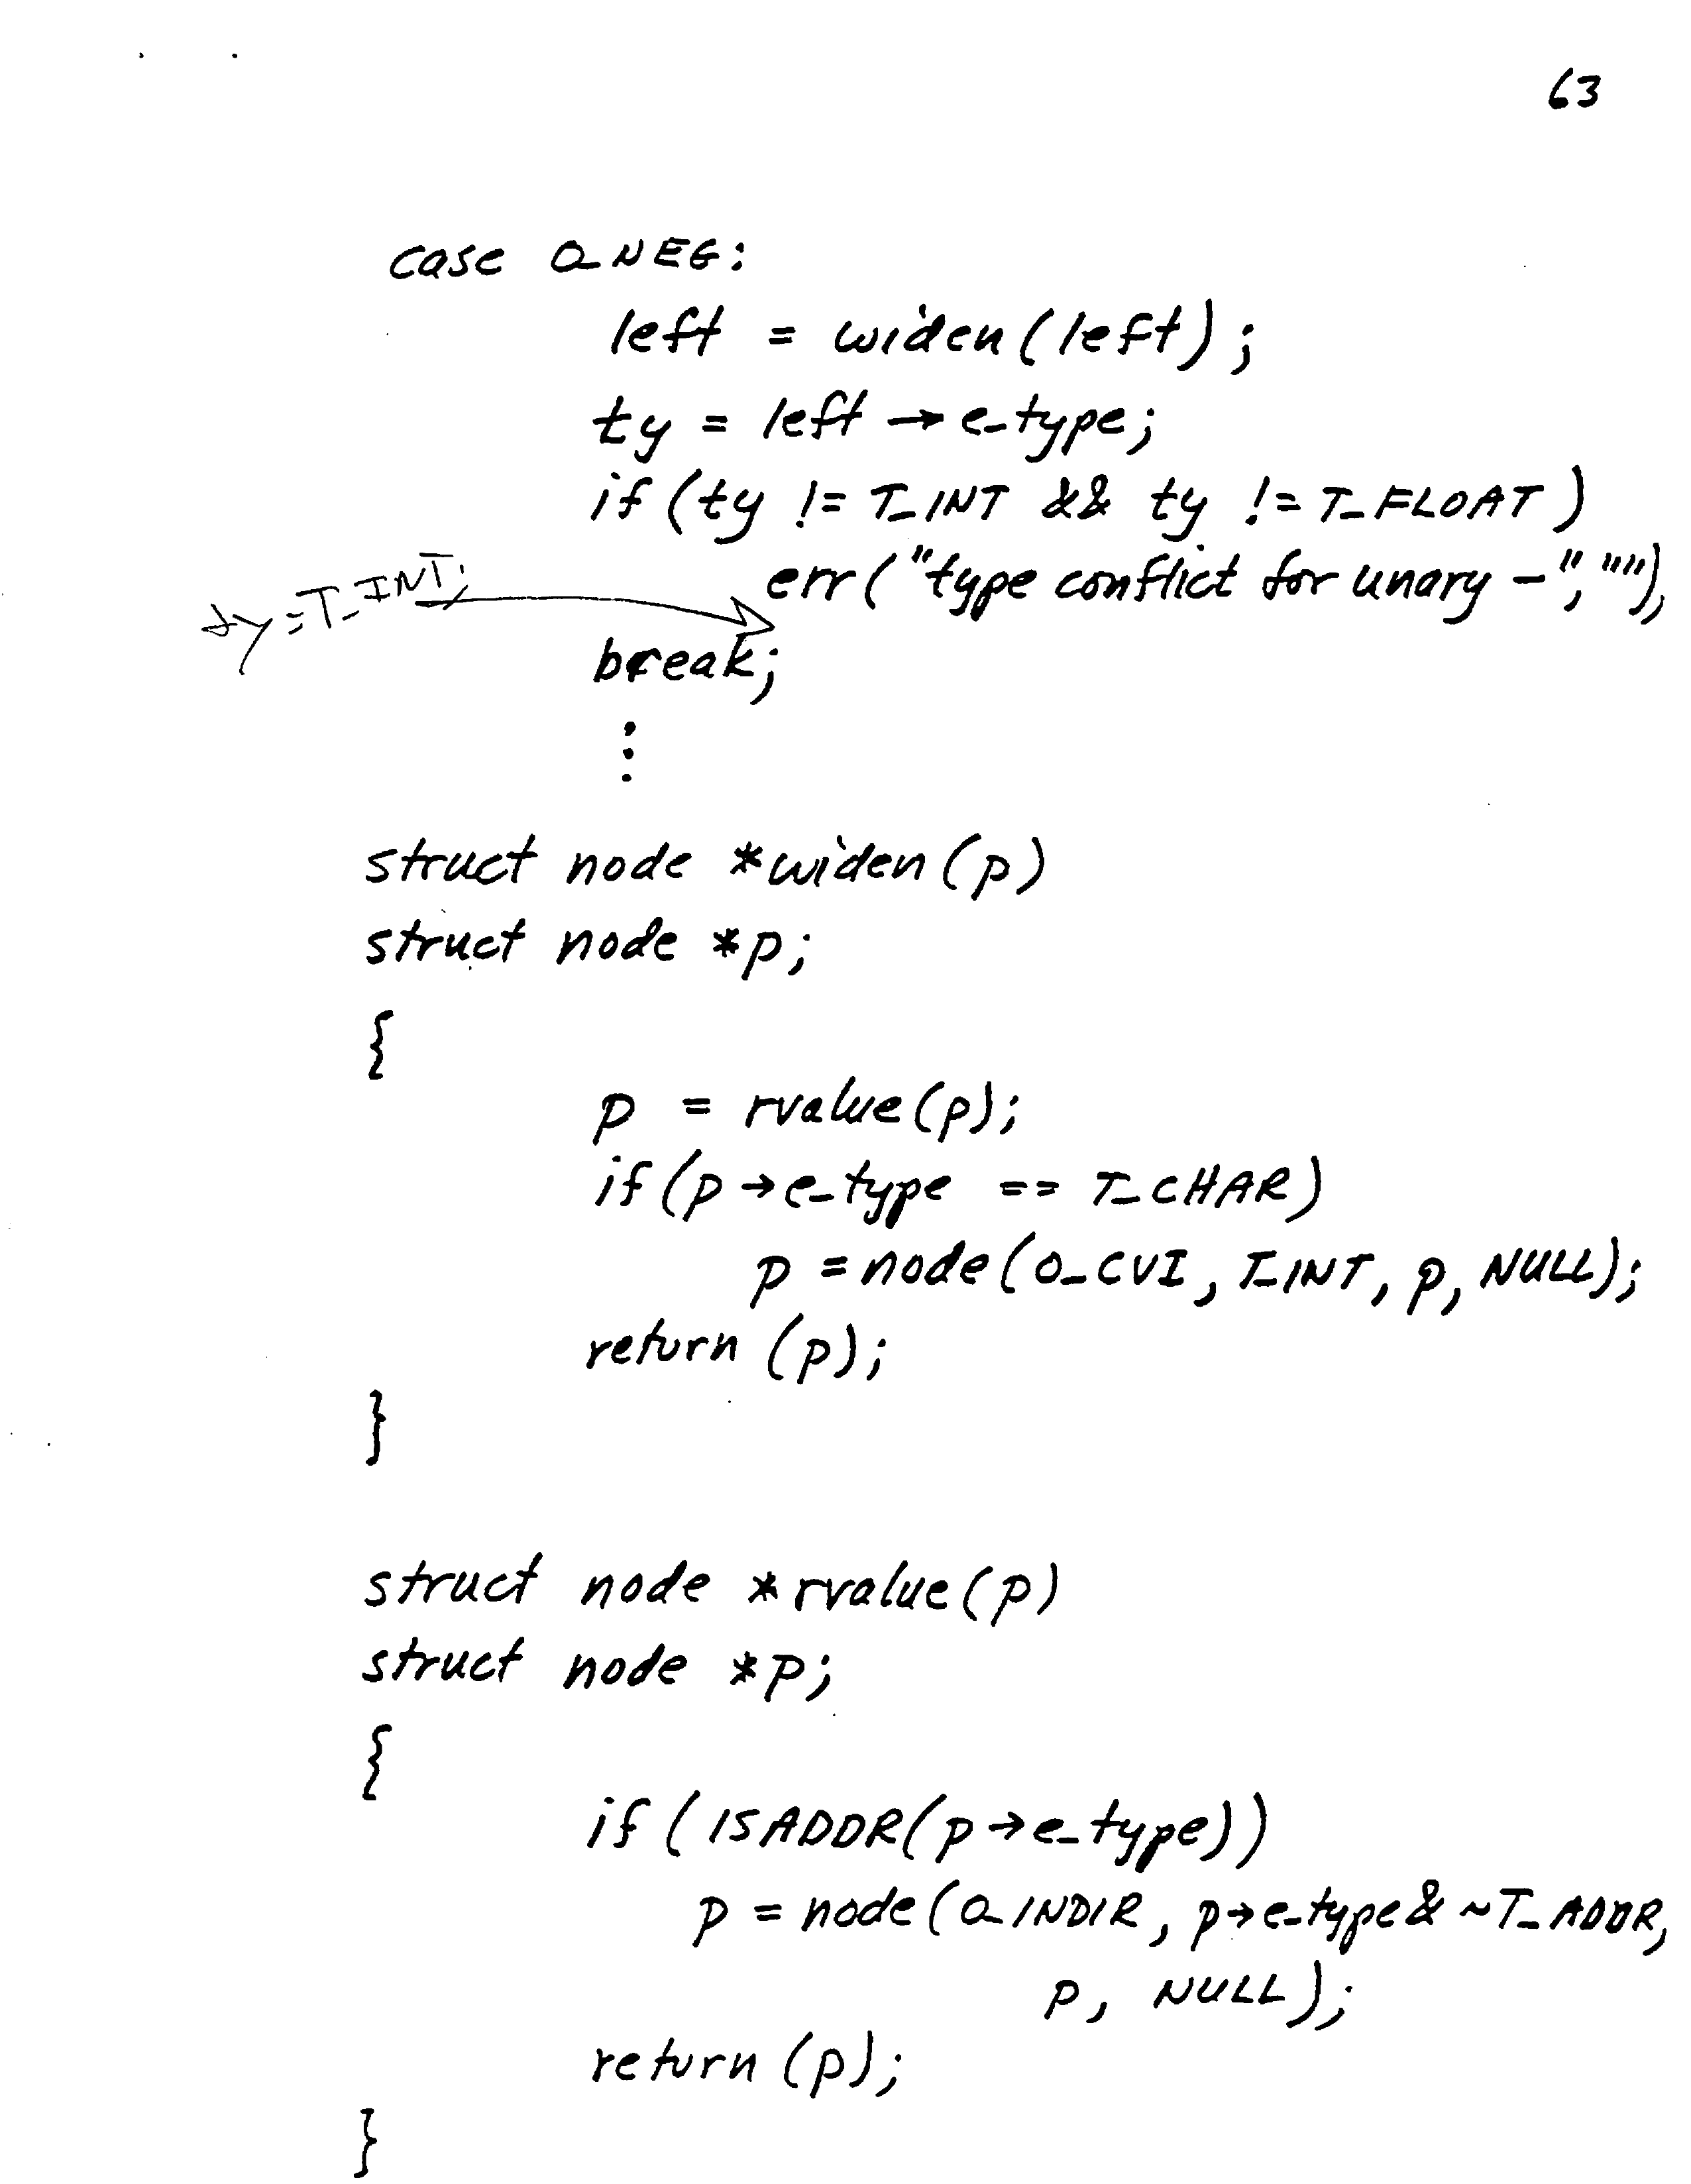 63
case O_NEG:
left = widen(left);
ty = left → e_type;
if (ty != T_INT && ty != T_FLOAT)
err("type conflict for unary -", "");
ty = T_INT;
break;
⋮
struct node *widen(p)
struct node *p;
{
p = rvalue(p);
if (p → e_type == T_CHAR)
p = node(O_CVI, T_INT, p, NULL);
return (p);
}
struct node *rvalue(p)
struct node *p;
{
if (ISADDR(p → e_type))
p = node(O_INDIR, p → e_type & ~T_ADDR,
p, NULL);
return (p);
}